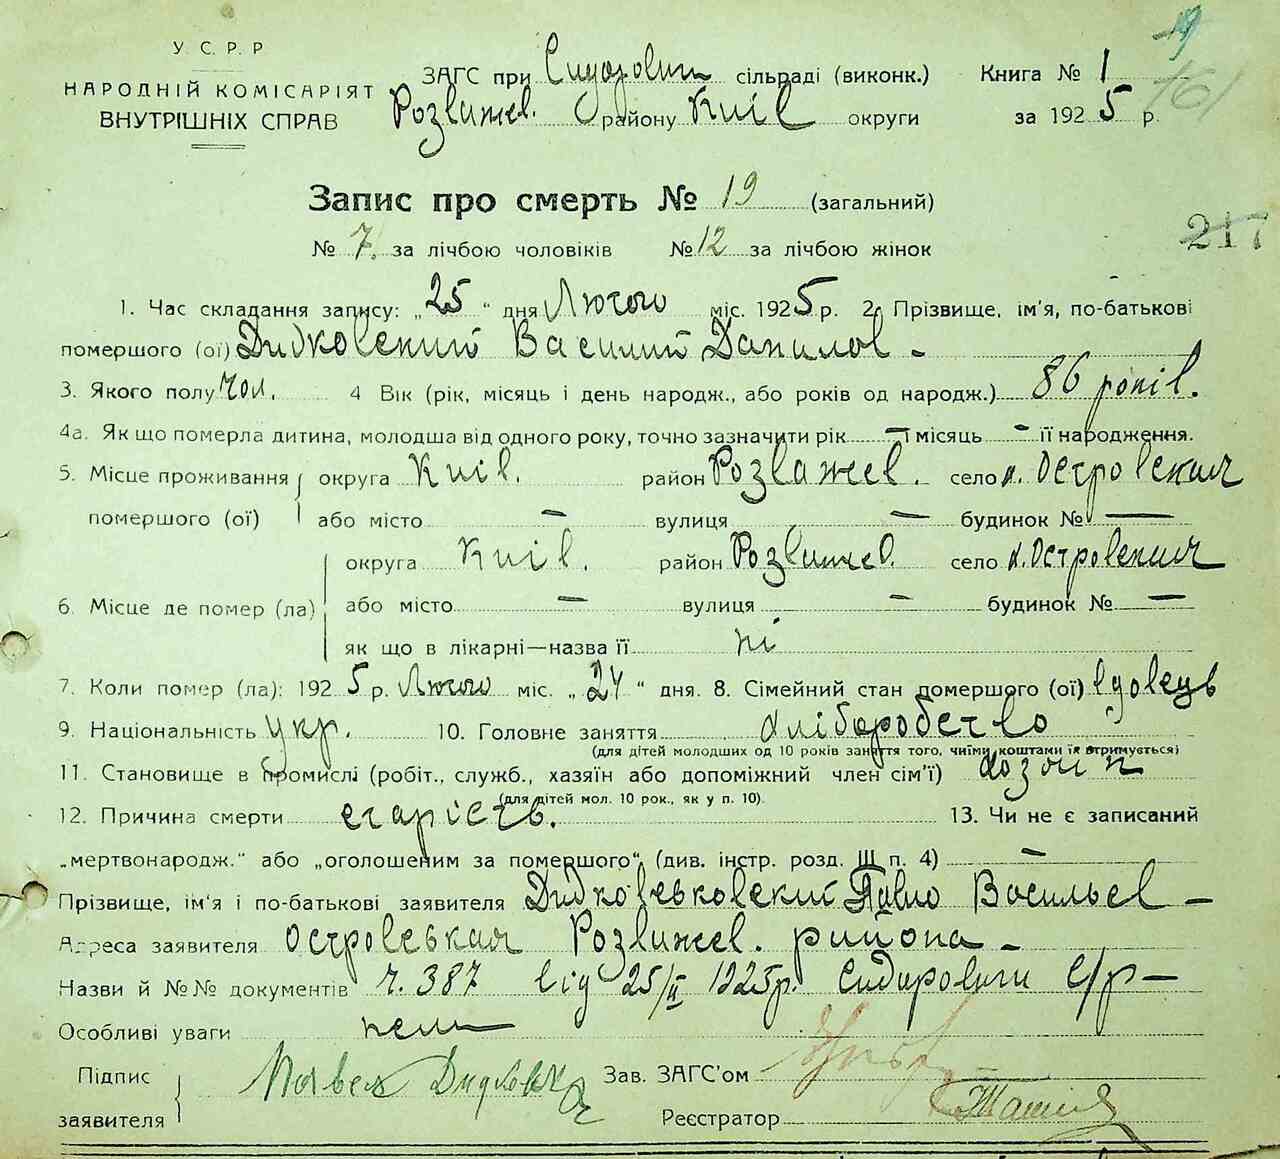 У С. Р. Р
НАРОДНІЙ КОМІСАРІЯТ
ВНУТРІШНІХ СПРАВ
ЗАГС при Сидорович сільраді (виконк.)
Розважев. району Київ округи
Книга № 1
за 1925 р.
19
161
Запис про смерть № 19 (загальний)
№ 7. за лічбою чоловіків № 12 за лічбою жінок
217
1. Час складання запису: „25" дня Лютого міс. 1925 р. 2. Прізвище, ім'я, по-батькові
помершого (ої) Дидковский Василий Данилов -
3. Якого полу чол. 4 Вік (рік, місяць і день народж., або років од народж.) 86 років.
4а. Як що померла дитина, молодша від одного року, точно зазначити рік — і місяць - її народження.
5. Місце проживання округа Київ. район Розважев. село х. Островская
помершого (ої) або місто — вулиця — будинок № —
округа Київ. район Розважев. село х. Островская
6. Місце де помер (ла) або місто — вулиця — будинок № —
як що в лікарні—назва її ні
7. Коли помер (ла): 1925 р. Лютого міс. „24" дня. 8. Сімейний стан помершого (ої) вдовець
9. Національність укр. 10. Головне заняття хліборобство
(для дітей молодших од 10 років заняття того, чиїми коштами їх втримується)
11. Становище в промислі (робіт., служб., хазяїн або допоміжний член сім'ї) хозяїн
(для дітей мол. 10 рок., як у п. 10).
12. Причина смерти старість. 13. Чи не є записаний
„мертвонародж." або „оголошеним за помершого" (див. інстр. розд. III п. 4) —
Прізвище, ім'я і по-батькові заявителя Дидковськовский Павло Васильев -
Адреса заявителя Островськая Розважев. района -
Назви й №№ документів ч. 387 від 25/II 1925р. Сидоровичи с/р -
Особливі уваги нема
Підпис
заявителя Павел Дидковск
Зав. ЗАГС'ом
Реєстратор